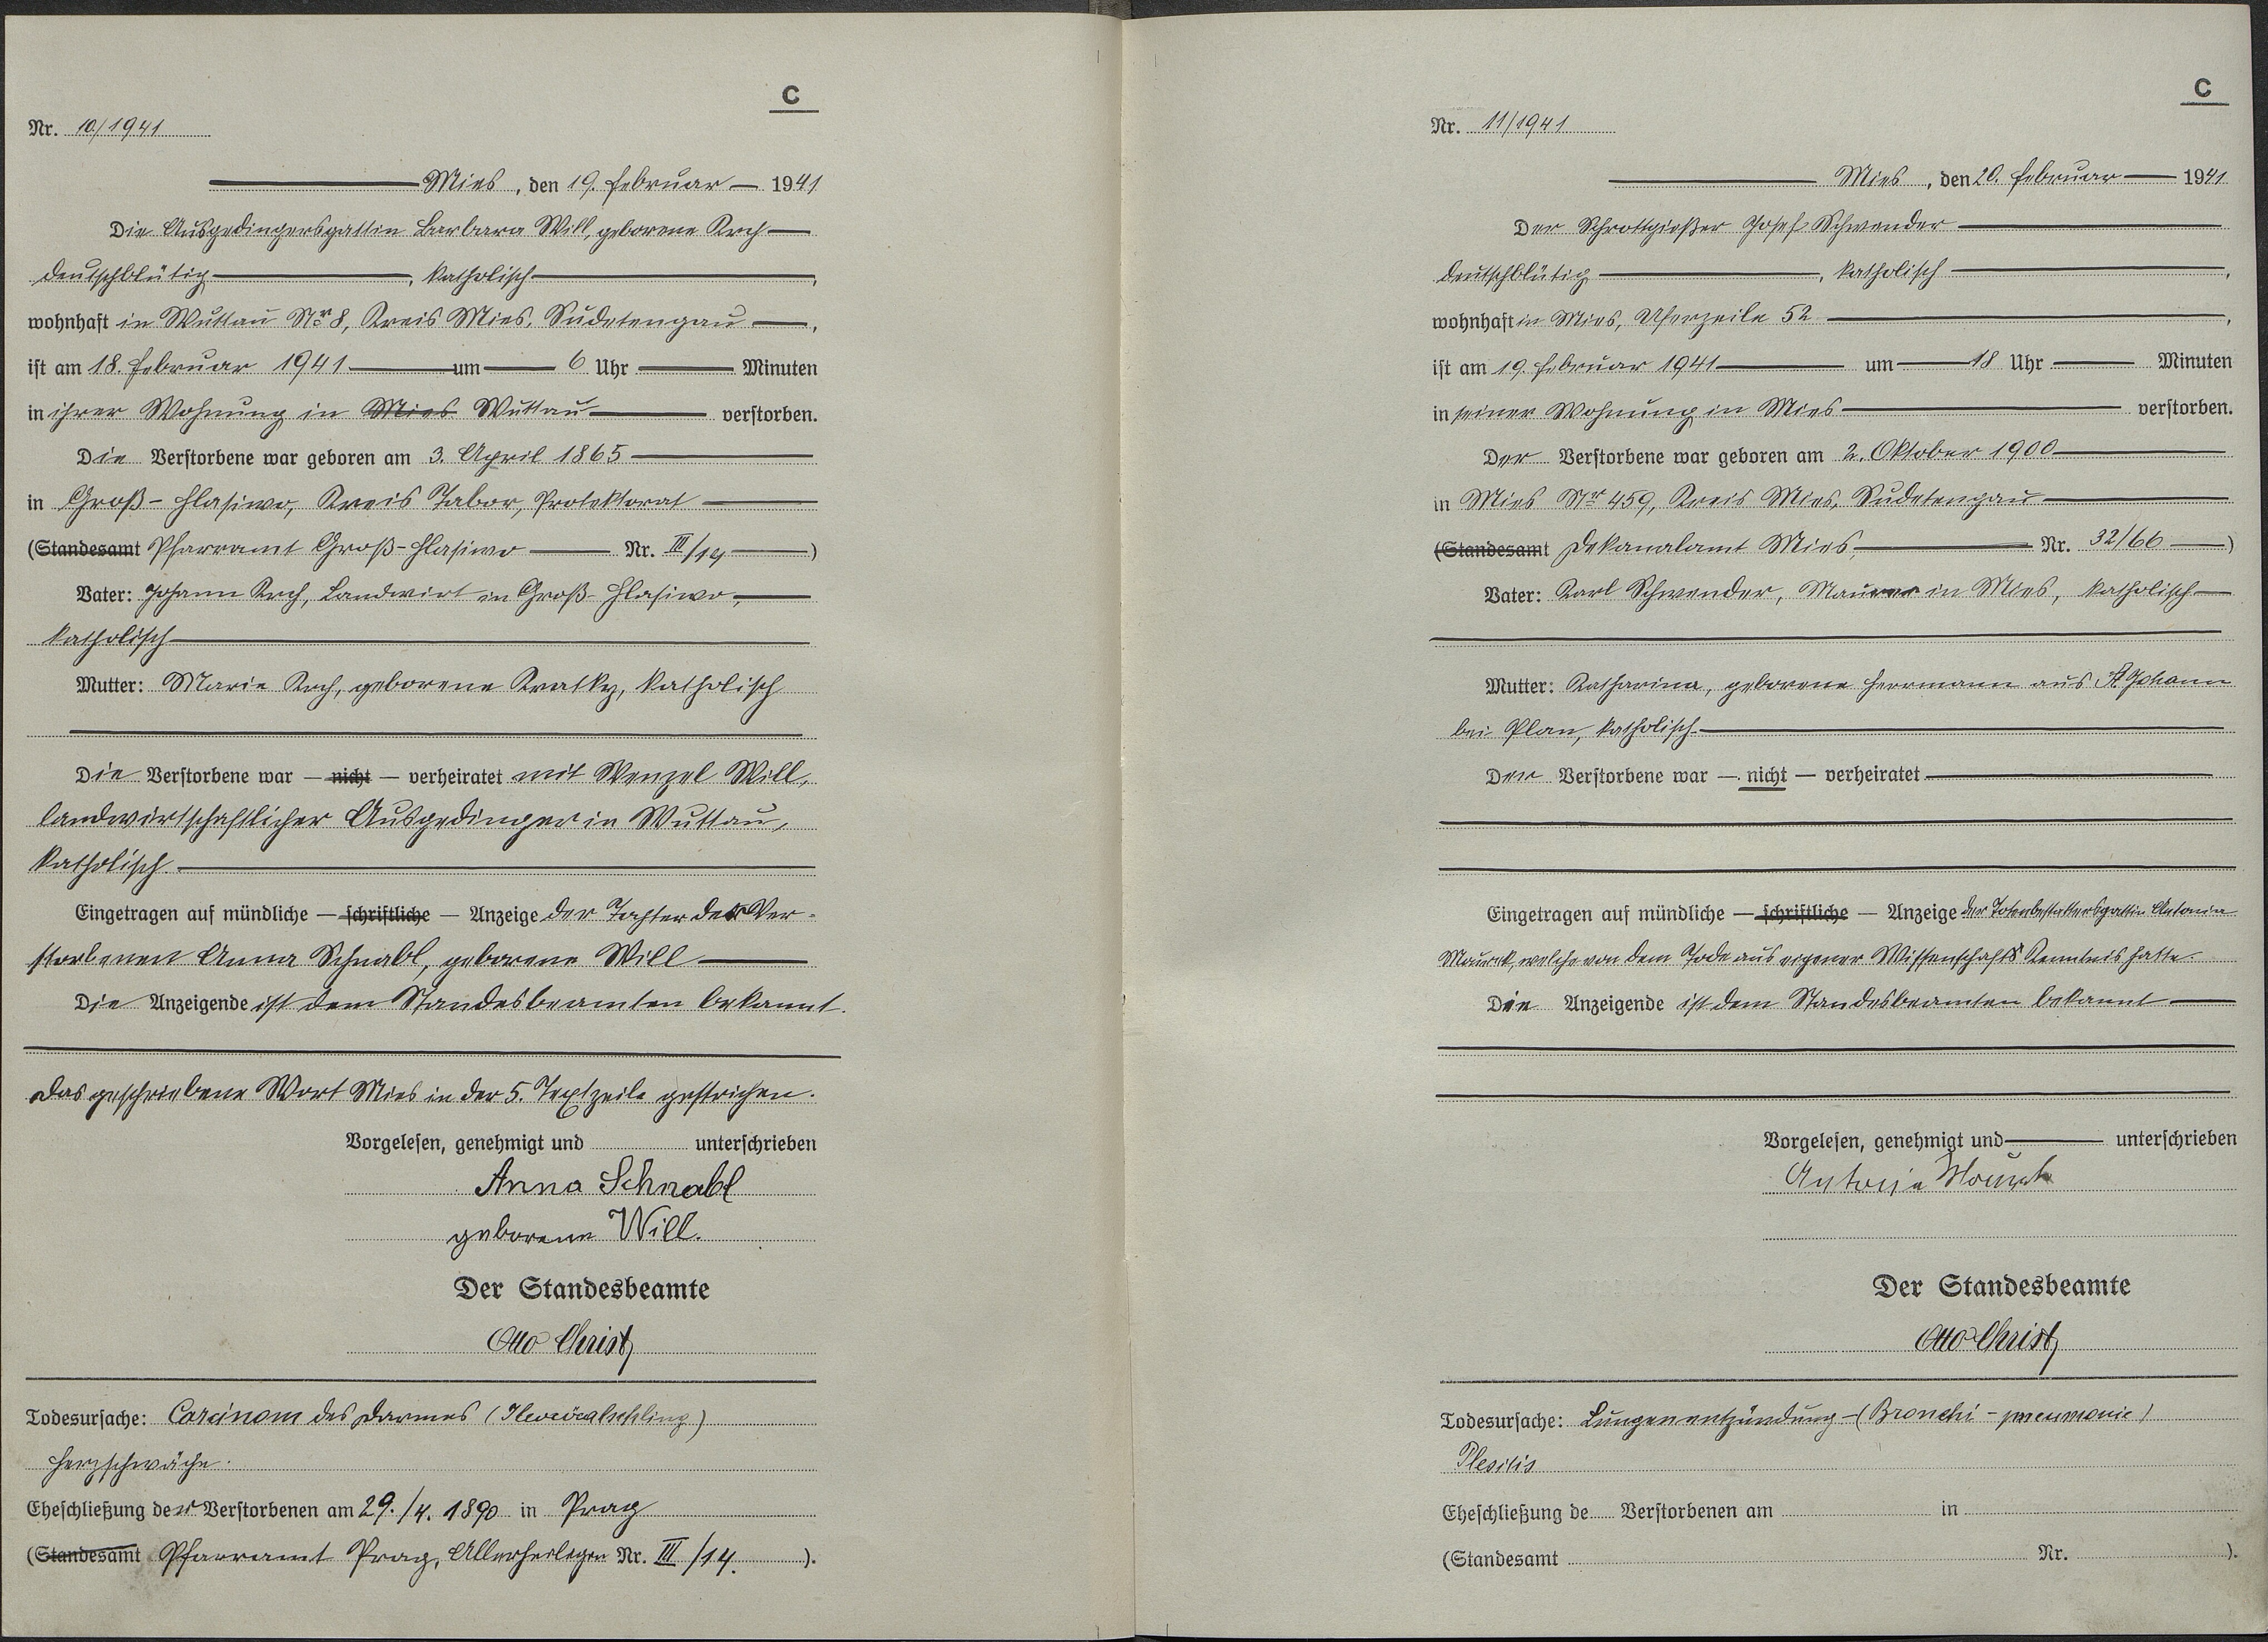 C
Nr. 10/1941
Mies, den 19. Februar 1941
Die Ausgedingersgattin Barbara Will, geborene Krch
deutschblütig, katholisch,
wohnhaft in Wuttau Nr 8, Kreis Mies, Sudetengau,
ist am 18. Februar 1941 um 6 Uhr Minuten
in ihrer Wohnung in Mies Wuttau verstorben.
Die Verstorbene war geboren am 3. April 1865
in Groß-Hlasiwo, Kreis Tabor, Protektorat
(Standesamt Pfarramt Groß-Hlasiwo Nr. III/14)
Vater: Johann Krch, Landwirt in Groß-Hlasiwo,
katholisch
Mutter: Marie Krch, geborene Kratky, katholisch
Die Verstorbene war — nicht — verheiratet mit Wenzel Will,
landwirtschaftlicher Ausgedinger in Wuttau,
katholisch.
Eingetragen auf mündliche — schriftliche — Anzeige der Tochter der Ver-
storbenen Anna Schnabl, geborene Will
Die Anzeigende ist dem Standesbeamten bekannt.
Das geschriebene Wort Mies in der 5. Textzeile gestrichen.
Vorgelesen, genehmigt und unterschrieben
Anna Schnabl
geborene Will.
Der Standesbeamte
Otto Christ
Todesursache: Carcinom des Darmes
Herzschwäche.
Eheschließung der Verstorbenen am 29./4. 1890 in Prag
(Standesamt Pfarramt Prag, Allerheiligen Nr. III/14.).
C
Nr. 11/1941
Mies, den 20. Februar 1941
Der Schrottgießer Josef Schwender
deutschblütig, katholisch,
wohnhaft in Mies, Uferzeile 52,
ist am 19. Februar 1941 um 18 Uhr Minuten
in seiner Wohnung in Mies verstorben.
Der Verstorbene war geboren am 2. Oktober 1900
in Mies Nr 459, Kreis Mies, Sudetengau
(Standesamt Dekanalamt Mies Nr. 32/66)
Vater: Karl Schwender, Maurer in Mies, katholisch
Mutter: Katharina, geborene Herrmann aus St. Johann
bei Plan, katholisch.
Der Verstorbene war — nicht — verheiratet
Eingetragen auf mündliche — schriftliche — Anzeige der Totenbestattersgattin Antonia
Maurek, welche von dem Tode aus eigener Wissenschaft Kenntnis hatte.
Die Anzeigende ist dem Standesbeamten bekannt
Vorgelesen, genehmigt und unterschrieben
Antonia Maurek
Der Standesbeamte
Otto Christ
Todesursache: Lungenentzündung - (Bronchi-pneumonie)
Eheschließung de Verstorbenen am in
(Standesamt Nr. ).